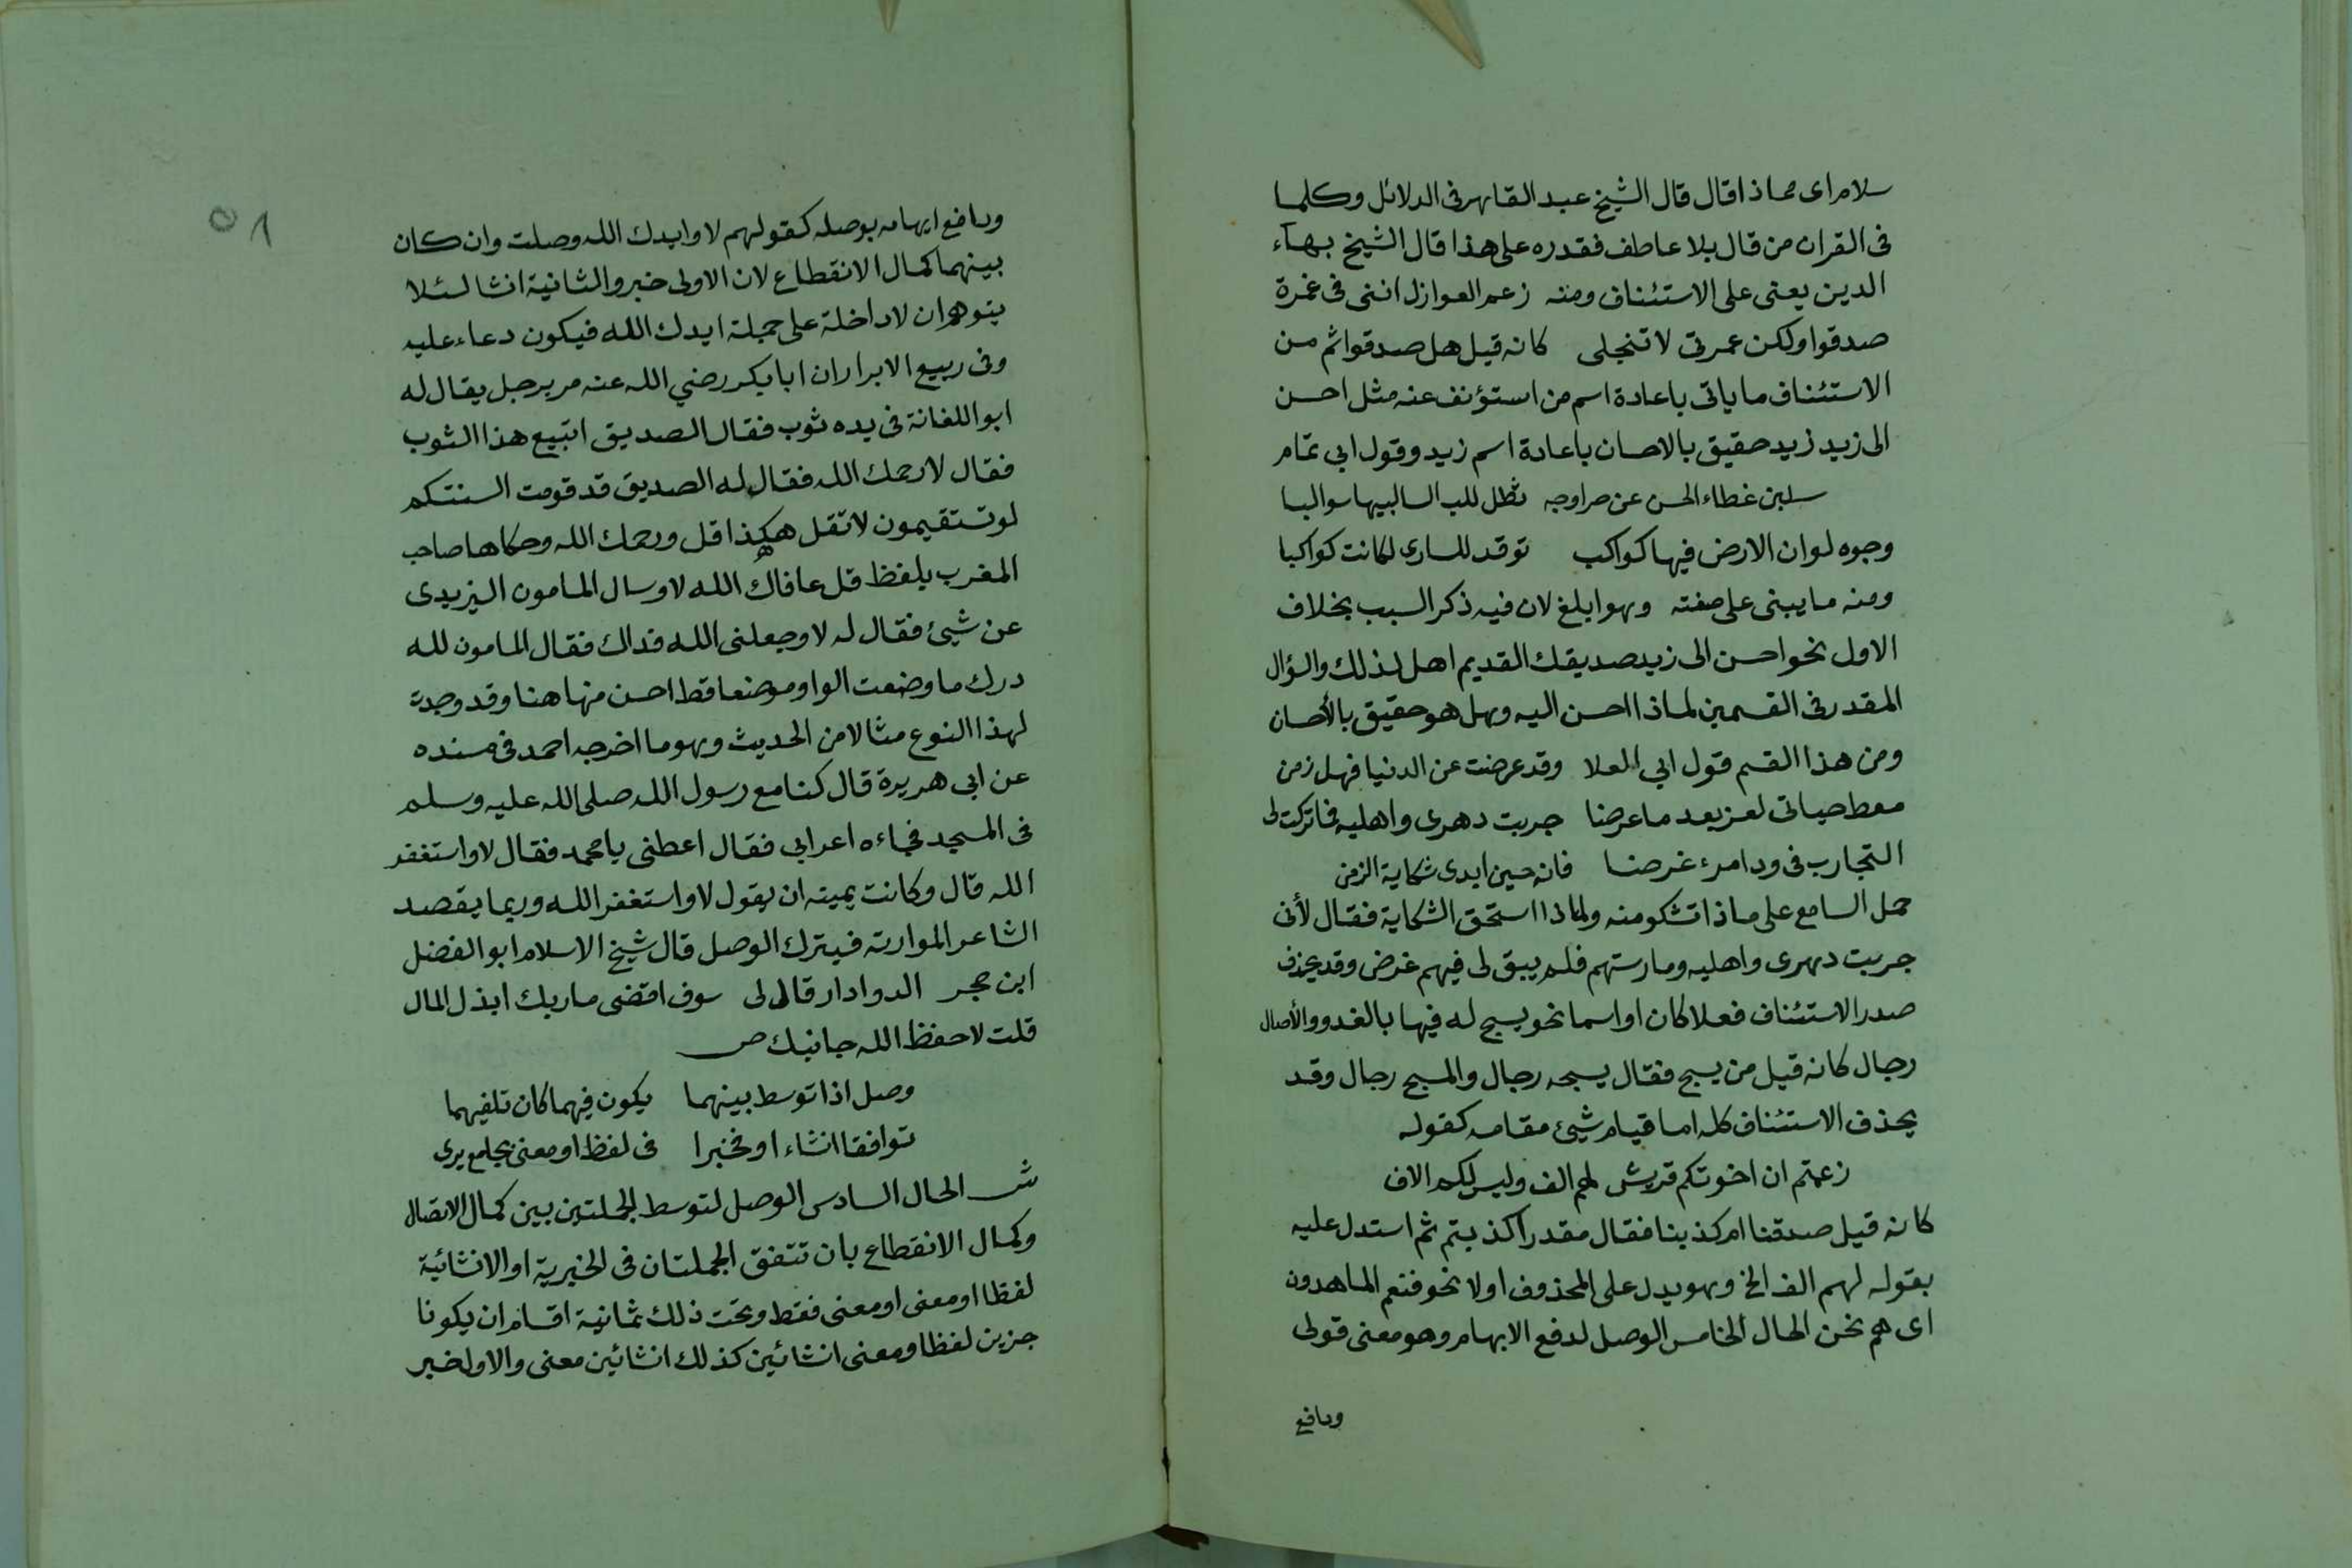 سلام اى فماذا قال قال الشيخ عبد القاهر فى الدلائل وكلما
فى القران من قال بلا عاطف فقدره على هذا قال الشيخ بهآء
الدين يعنى على الاستئناف ومنه زعم العوازل اننى فى غمرة
صدقوا ولكن غمرتى لا تنجلى كانه قيل هل صدقوا ثم من
الاستئناف ما ياتى باعادة اسم من استؤنف عنه مثل احسن
الى زيد زيد حقيق بالاحسان باعادة اسم زيد وقول ابى تمام
سلبن غطاء الحسن عن حر اوجه تظل للب السالبيها سوالبا
وجوه لو ان الارض فيها كواكب توقد للسارى لكانت كواكبا
ومنه ما يبنى على صفته وهو ابلغ لان فيه ذكر السبب بخلاف
الاول نحو احسن الى زيد صديقك القديم اهل لذلك والسؤال
المقدر فى القسمين لماذا احسن اليه وهل هو حقيق بالأحسان
ومن هذا القسم قول ابي العلا وقد عرضت عن الدنيا فهل زمن
معط حياتى لعز بعد ما عرضا جربت دهرى واهليه فما تركت لى
التجارب فى ود امرء غرضا فانه حين ابدى شكاية الزمن
حمل السامع على ماذا تشكو منه ولماذا استحق الشكاية فقال لأنى
جربت دهرى واهليه ومارستهم فلم يبق لى فيهم غرض وقد يحذف
صدر الاستئناف فعلا كان او اسما نحو يسبح له فيها بالغدو والأصال
رجال كانه قيل من يسبح فقال يسبحه رجال والمسبح رجال وقد
يحذف الاستئناف كله اما قيام شيئ مقامه كقوله
زعمتم ان اخوتكم قريش لهم الف وليس لكم الاف
كانه قيل صدقنا ام كذبنا فقال مقدرا كذبتم ثم استدل عليه
بقوله لهم الف الخ وهو يدل على المحذوف اولا نحو فنعم الماهدون
اى هم نحن الحال الخامس الوصل لدفع الابهام وهو معنى قولى
ودافع
ودافع ايهامه بوصله كقولهم لا وايدك الله وصلت وان كان
بينهما كمال الانقطاع لان الاولى خبر والثانية انشا لئلا
يتوهم ان لا داخلة على جملة ايدك الله فيكون دعاء عليه
وفى ربيع الابرار ان ابا بكر رضي الله عنه مر برجل يقال له
ابو اللغانة فى يده ثوب فقال الصديق اتبيع هذا الثوب
فقال لا رحمك الله فقال له الصديق قد قومت السنتكم
لو تستقيمون لا تقل هكذا قل ورحمك الله وحكاها صاحب
المغرب بلفظ قل عافاك الله لا وسال المامون اليزيدى
عن شيئ فقال له لا وجعلنى الله فداك فقال المامون لله
درك ما وضعت الواو موضعا قط احسن منها هنا وقد وجدت
لهذا النوع مثالا من الحديث وهو ما اخرجه احمد فى مسنده
عن ابى هريرة قال كنا مع رسول الله صلى الله عليه وسلم
فى المسجد فجاءه اعرابى فقال اعطنى يا محمد فقال لا واستغفر
الله قال وكانت يمينه ان يقول لا واستغفر الله وربما يقصد
الشاعر الموارته فيترك الوصل قال شيخ الاسلام ابو الفضل
ابن حجر الدوادار قال لى سوف اقضى ماربك ابذل المال
قلت لا حفظ الله جانبك ص
وصل اذا توسط بينهما يكون فيهما كان تلفيهما
توافقا انشاء او تخبرا فى لفظ او معنى بجامع يرى
ش الحال السادس الوصل لتوسط الجملتين بين كمال الاتصال
وكمال الانقطاع بان تتفق الجملتان فى الخبرية او الانشائية
لفظا او معنى او معنى فقط وتحت ذلك ثمانية اقسام ان يكونا
خبرين لفظا ومعنى انشائين كذلك انشائين معنى والاول خبر